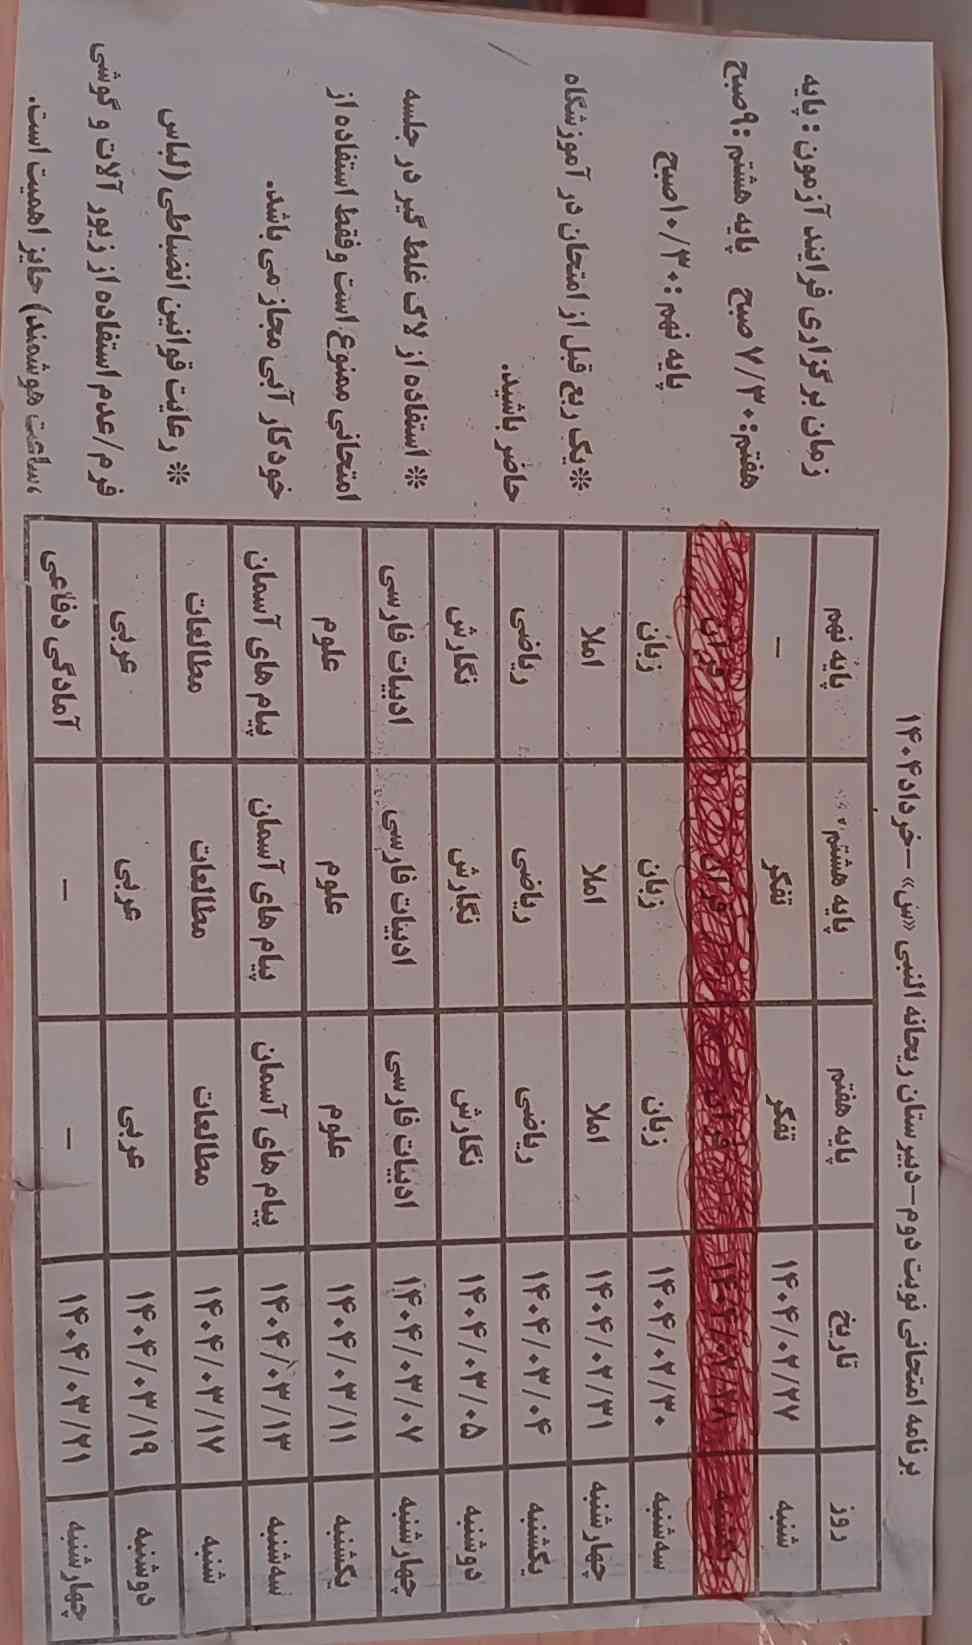 برنامه امتحانی نوبت دوم-دبیرستان ریحانه النبی «س» -خرداد۱۴۰۴
روز تاریخ پایه هفتم پایه هشتم پایه نهم
شنبه ۱۴۰۴/۰۲/۲۷ تفکر تفکر -
یکشنبه ۱۴۰۴/۰۲/۲۸ قرآن قرآن قرآن
سه شنبه ۱۴۰۴/۰۲/۳۰ زبان زبان زبان
چهارشنبه ۱۴۰۴/۰۲/۳۱ املا املا املا
یکشنبه ۱۴۰۴/۰۳/۰۴ ریاضی ریاضی ریاضی
دوشنبه ۱۴۰۴/۰۳/۰۵ نگارش نگارش نگارش
چهارشنبه ۱۴۰۴/۰۳/۰۷ ادبیات فارسی ادبیات فارسی ادبیات فارسی
یکشنبه ۱۴۰۴/۰۳/۱۱ علوم علوم علوم
سه شنبه ۱۴۰۴/۰۳/۱۳ پیام های آسمان پیام های آسمان پیام های آسمان
شنبه ۱۴۰۴/۰۳/۱۷ مطالعات مطالعات مطالعات
دوشنبه ۱۴۰۴/۰۳/۱۹ عربی عربی عربی
چهارشنبه ۱۴۰۴/۰۳/۲۱ - - آمادگی دفاعی
زمان برگزاری فرایند آزمون : پایه
هفتم:۷/۳۰ صبح پایه هشتم :۹صبح
پایه نهم :۱۰/۳۰صبح
*یک ربع قبل از امتحان در آموزشگاه
حاضر باشید.
* استفاده از لاک غلط گیر در جلسه
امتحانی ممنوع است و فقط استفاده از
خودکار آبی مجاز می باشد.
* رعایت قوانین انضباطی (لباس
فرم/عدم استفاده از زیور آلات و گوشی
،ساعت هوشمند) حایز اهمیت است.